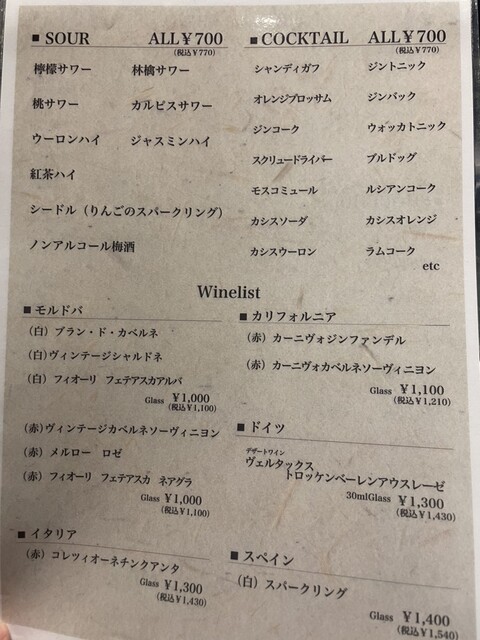 ■ SOUR ALL¥700
(税込¥770)
檸檬サワー 林檎サワー
桃サワー カルピスサワー
ウーロンハイ ジャスミンハイ
紅茶ハイ
シードル（りんごのスパークリング）
ノンアルコール梅酒
■ COCKTAIL ALL¥700
(税込¥770)
シャンディガフ ジントニック
オレンジブロッサム ジンバック
ジンコーク ウォッカトニック
スクリュードライバー ブルドッグ
モスコミュール ルシアンコーク
カシスソーダ カシスオレンジ
カシスウーロン ラムコーク
etc
Winelist
■ モルドバ
（白）ブラン・ド・カベルネ
（白）ヴィンテージシャルドネ
（白）フィオーリ フェテアスカアルバ
Glass ¥1,000
(税込¥1,100)
（赤）ヴィンテージカベルネソーヴィニヨン
（赤）メルロー ロゼ
（赤）フィオーリ フェテアスカ ネアグラ
Glass ¥1,000
(税込¥1,100)
■ イタリア
（赤）コレツィオーネチンクアンタ
Glass ¥1,300
(税込¥1,430)
■ カリフォルニア
（赤）カーニヴォジンファンデル
（赤）カーニヴォカベルネソーヴィニヨン
Glass ¥1,100
(税込¥1,210)
■ ドイツ
デザートワイン
ヴェルタックス
トロッケンベーレンアウスレーゼ
30mlGlass ¥1,300
(税込¥1,430)
■ スペイン
（白）スパークリング
Glass ¥1,400
(税込¥1,540)